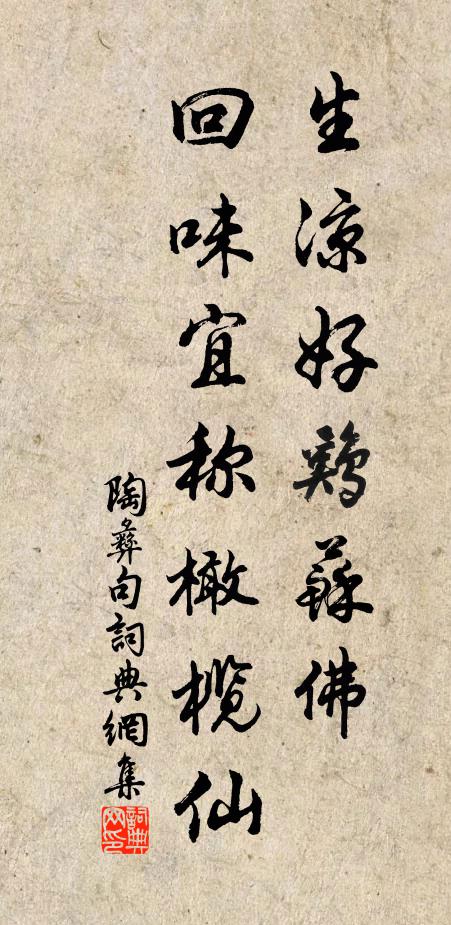 生涼好鷄蘇佛
回味宜称橄榄仙
陶彝句詞典網集
詞典
网印